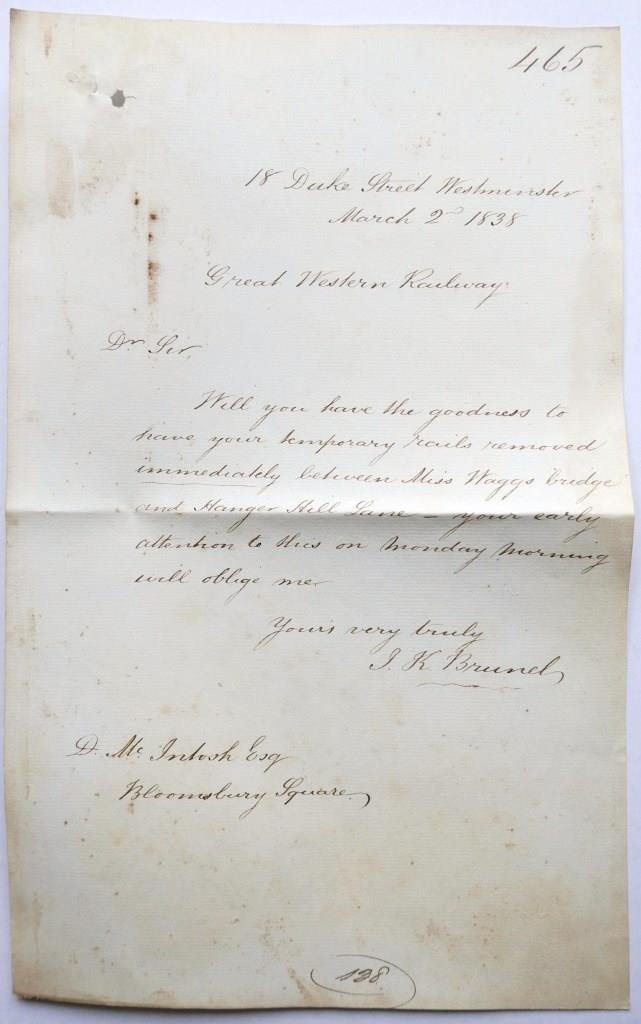 465
18 Duke Street Westminster
March 2d 1838
Great Western Railway
Dr Sir,
Will you have the goodness to
have your temporary rails removed
immediately between Miss Waggs bridge
and Hanger Hill Lane – your early
attention to this on Monday Morning
will oblige me
Yours very truly
I. K Brunel
D. Mc Intosh Esq
Bloomsbury Square
138.